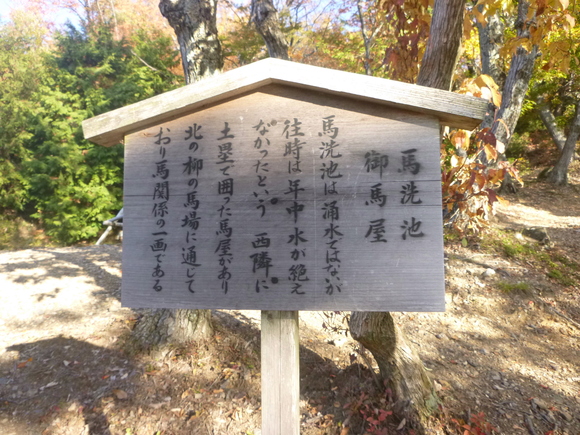 馬洗池
御馬屋
馬洗池は涌水ではないが
往時は年中水が絶え
なかったという。西隣に
土塁で囲った馬屋があり
北の柳の馬場に通じて
おり馬関係の一画である